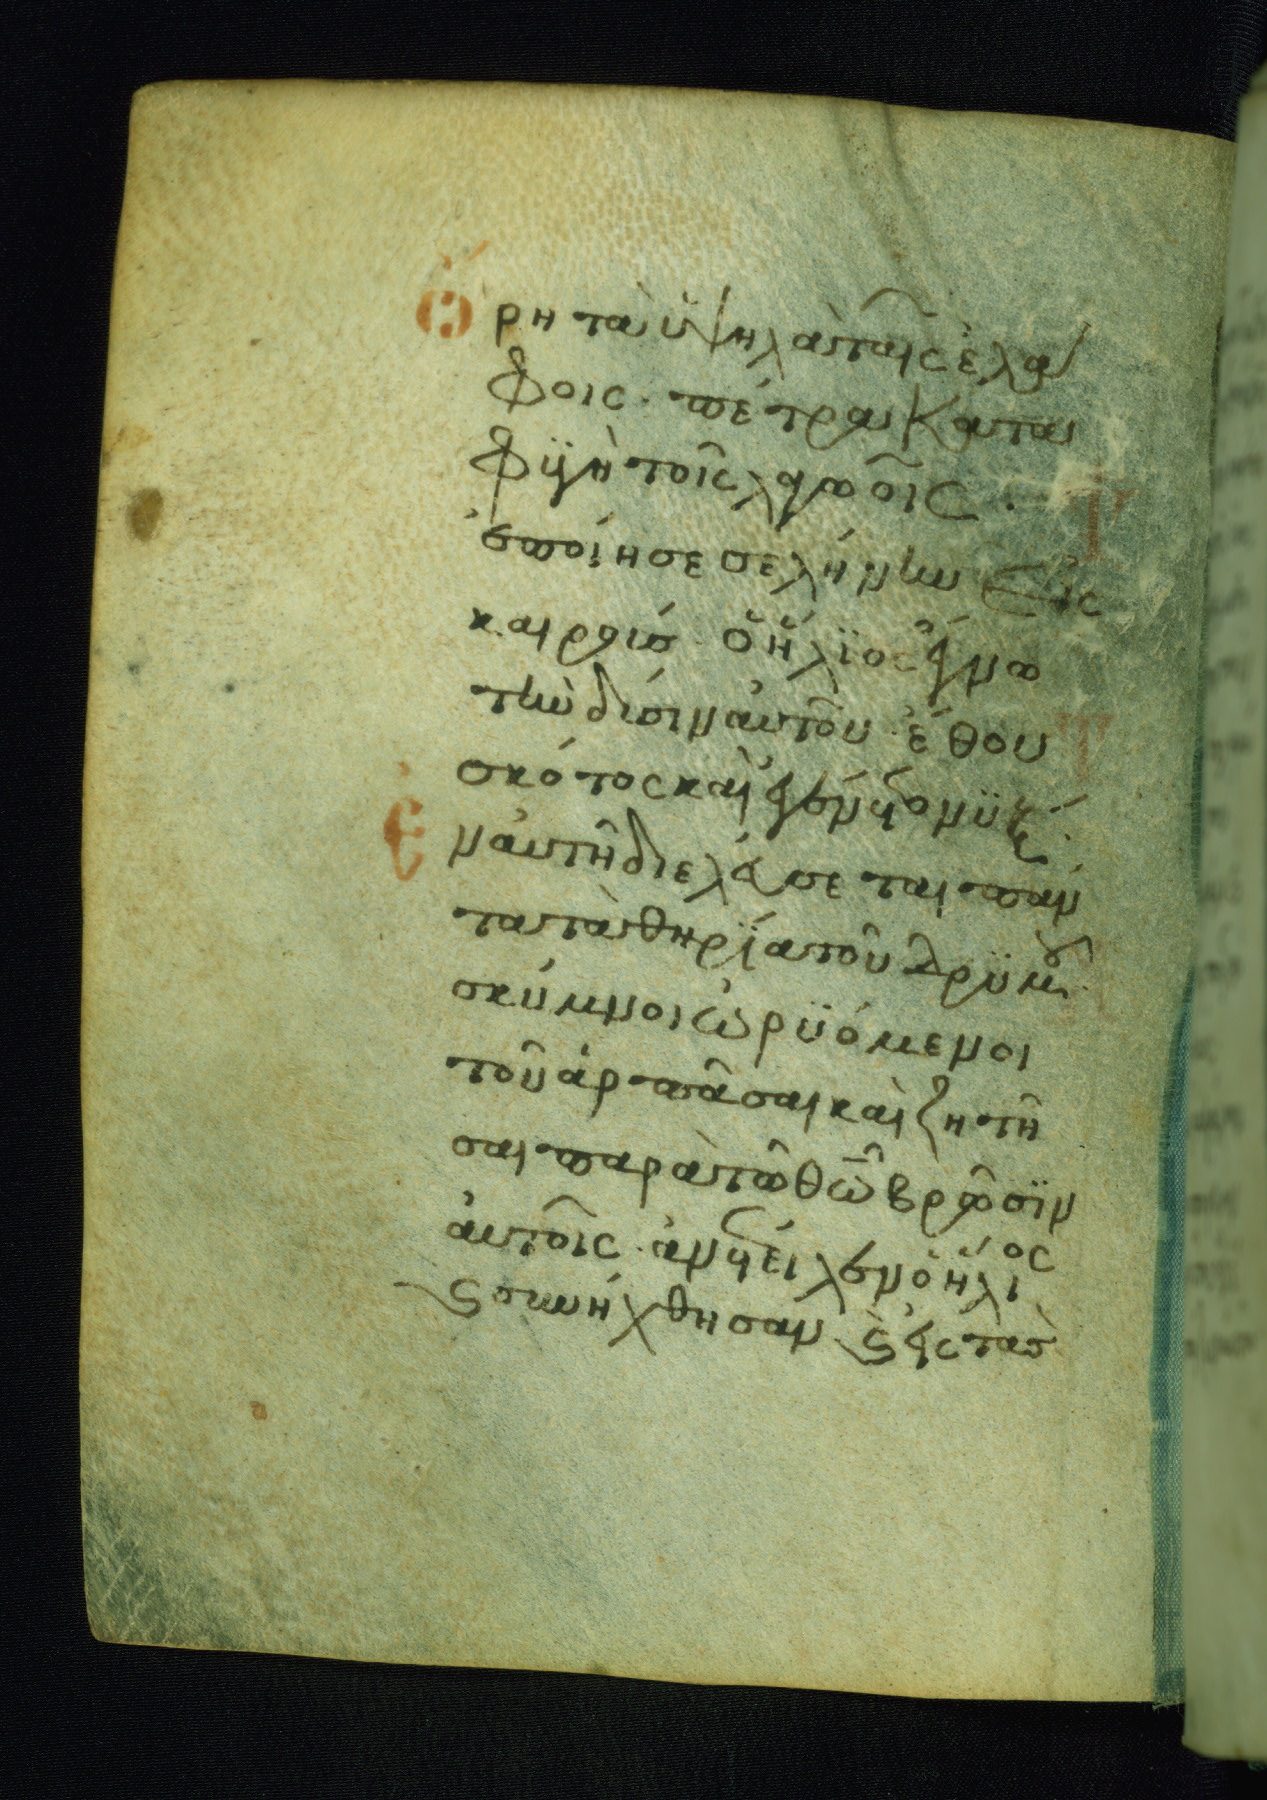 Ὄρη τὰ ὑψηλὰ ταῖς ἐλά
φοις· πέτρα κατα
φυγὴ τοῖς λαγωοῖς·
ἐποίησε σελήνην εἰς
καιρούς· ὁ ἥλιος ἔγνω
τὴν δύσιν αὐτοῦ· ἔθου
σκότος καὶ ἐγένετο νύξ·
Ἐν αὐτῇ διελεύσεται πάν
τα τὰ θηρία τοῦ δρυμοῦ·
σκύμνοι ὠρυόμενοι
τοῦ ἁρπάσαι καὶ ζητῆ
σαι παρὰ τῷ θῶ βρῶσιν
αὐτοῖς· ἀνέτειλεν ὁ ἥλιος
συνήχθησαν, καὶ εἰς τὰς